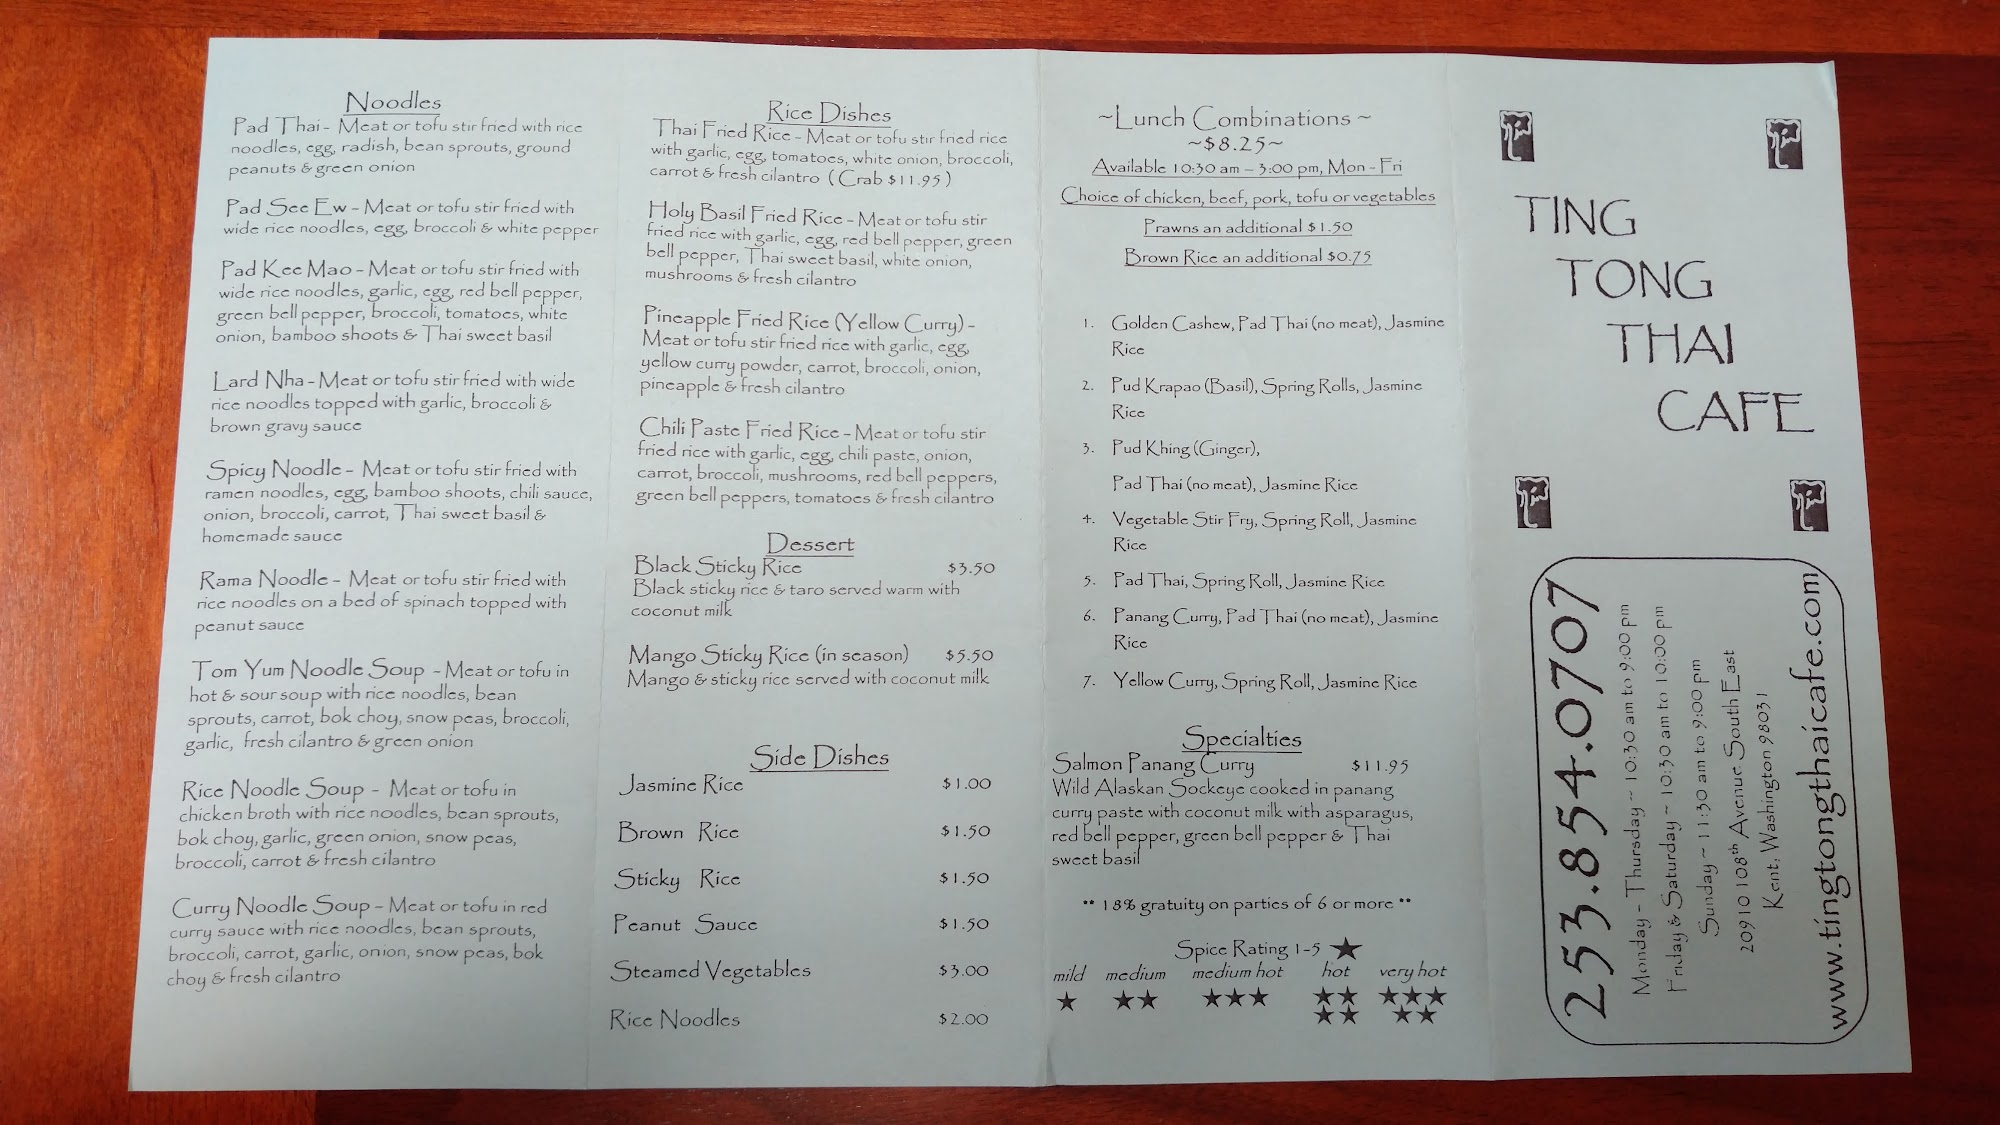 Noodles
Pad Thai - Meat or tofu stir fried with rice
noodles, egg, radish, bean sprouts, ground
peanuts & green onion
Pad See Ew - Meat or tofu stir fried with
wide rice noodles, egg, broccoli & white pepper
Pad Kee Mao - Meat or tofu stir fried with
wide rice noodles, garlic, egg, red bell pepper,
green bell pepper, broccoli, tomatoes, white
onion, bamboo shoots & Thai sweet basil
Lard Nha - Meat or tofu stir fried with wide
rice noodles topped with garlic, broccoli &
brown gravy sauce
Spicy Noodle - Meat or tofu stir fried with
ramen noodles, egg, bamboo shoots, chili sauce,
onion, broccoli, carrot, Thai sweet basil &
homemade sauce
Rama Noodle - Meat or tofu stir fried with
rice noodles on a bed of spinach topped with
peanut sauce
Tom Yum Noodle Soup - Meat or tofu in
hot & sour soup with rice noodles, bean
sprouts, carrot, bok choy, snow peas, broccoli,
garlic, fresh cilantro & green onion
Rice Noodle Soup - Meat or tofu in
chicken broth with rice noodles, bean sprouts,
bok choy, garlic, green onion, snow peas,
broccoli, carrot & fresh cilantro
Curry Noodle Soup - Meat or tofu in red
curry sauce with rice noodles, bean sprouts,
broccoli, carrot, garlic, onion, snow peas, bok
choy & fresh cilantro
Rice Dishes
Thai Fried Rice - Meat or tofu stir fried rice
with garlic, egg, tomatoes, white onion, broccoli,
carrot & fresh cilantro ( Crab $11.95 )
Holy Basil Fried Rice - Meat or tofu stir
fried rice with garlic, egg, red bell pepper, green
bell pepper, Thai sweet basil, white onion,
mushrooms & fresh cilantro
Pineapple Fried Rice (Yellow Curry) -
Meat or tofu stir fried rice with garlic, egg,
yellow curry powder, carrot, broccoli, onion,
pineapple & fresh cilantro
Chili Paste Fried Rice - Meat or tofu stir
fried rice with garlic, egg, chili paste, onion,
carrot, broccoli, mushrooms, red bell peppers,
green bell peppers, tomatoes & fresh cilantro
Dessert
Black Sticky Rice $3.50
Black sticky rice & taro served warm with
coconut milk
Mango Sticky Rice (in season) $5.50
Mango & sticky rice served with coconut milk
Side Dishes
Jasmine Rice $1.00
Brown Rice $1.50
Sticky Rice $1.50
Peanut Sauce $1.50
Steamed Vegetables $3.00
Rice Noodles $2.00
~Lunch Combinations ~
~$8.25~
Available 10:30 am – 3:00 pm, Mon - Fri
Choice of chicken, beef, pork, tofu or vegetables
Prawns an additional $1.50
Brown Rice an additional $0.75
1. Golden Cashew, Pad Thai (no meat), Jasmine
Rice
2. Pud Krapao (Basil), Spring Rolls, Jasmine
Rice
3. Pud Khing (Ginger),
Pad Thai (no meat), Jasmine Rice
4. Vegetable Stir Fry, Spring Roll, Jasmine
Rice
5. Pad Thai, Spring Roll, Jasmine Rice
6. Panang Curry, Pad Thai (no meat), Jasmine
Rice
7. Yellow Curry, Spring Roll, Jasmine Rice
Specialties
Salmon Panang Curry $11.95
Wild Alaskan Sockeye cooked in panang
curry paste with coconut milk with asparagus,
red bell pepper, green bell pepper & Thai
sweet basil
** 18% gratuity on parties of 6 or more **
Spice Rating 1-5 ★
mild medium medium hot hot very hot
★ ★★ ★★★ ★★ ★★★
★★ ★★
TING
TONG
THAI
CAFE
253.854.0707
Monday - Thursday ~ 10:30 am to 9:00 pm
Friday & Saturday ~ 10:30 am to 10:00 pm
Sunday ~ 11:30 am to 9:00 pm
20910 108th Avenue South East
Kent, Washington 98031
www.tingtongthaicafe.com